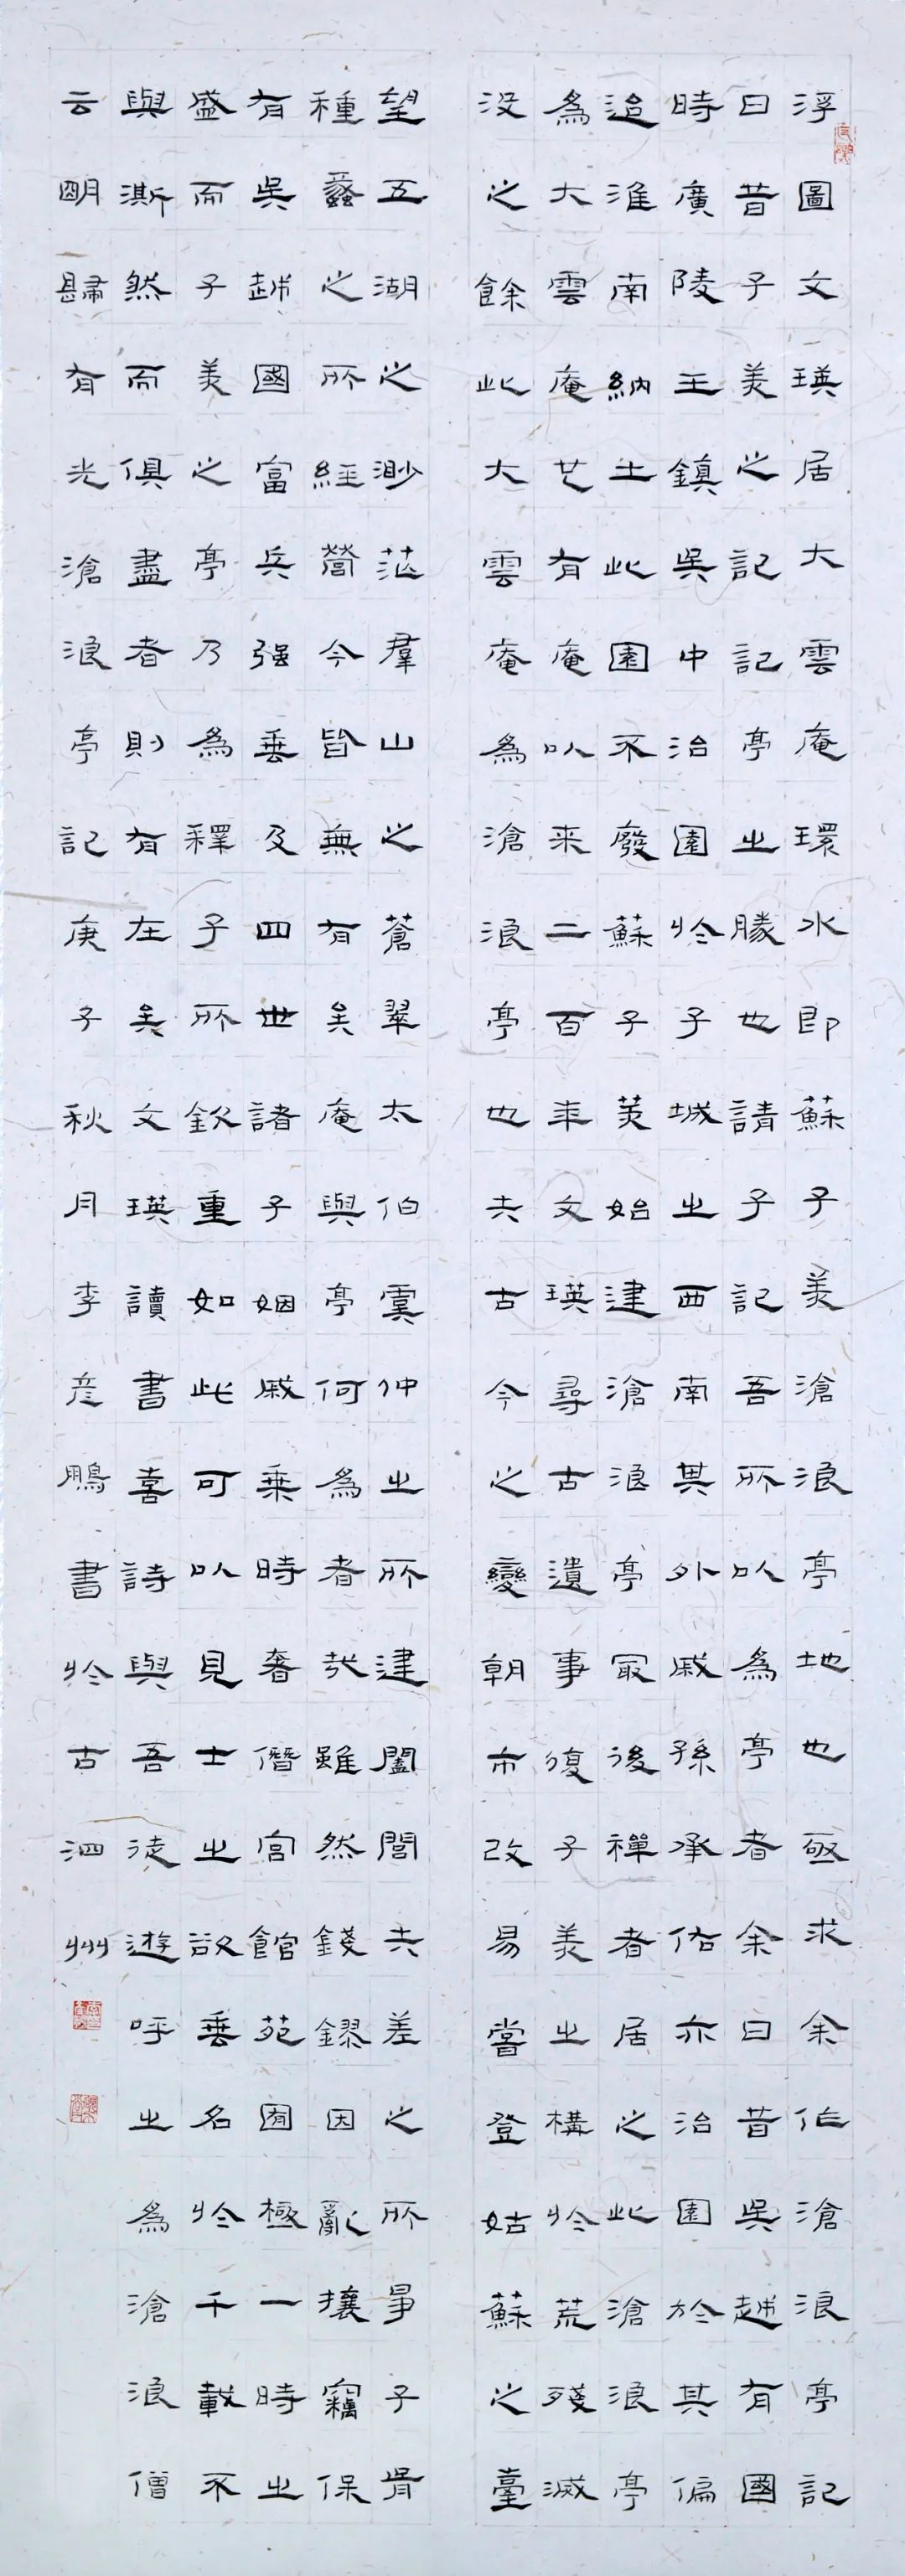 浮圖文瑛居大雲庵環水即蘇子美滄浪亭地也亟求余作滄浪亭記
曰昔子美之記記亭之勝也請子記吾所以為亭者余曰昔吳越有國
時廣陵王鎮吳中治園於子城之西南其外戚孫承佑亦治園於其偏
迨淮南納土此園不廢蘇子美始建滄浪亭最後禪者居之此滄浪亭
為大雲庵也有庵以来二百年文瑛尋古遺事復子美之構於荒殘滅
没之餘此大雲庵為滄浪亭也夫古今之變朝市改易嘗登姑蘇之臺
望五湖之渺茫羣山之蒼翠太伯虞仲之所建闔閭夫差之所爭子胥
種蠡之所經營今皆無有矣庵與亭何為者哉雖然錢鏐因亂攘竊保
有吳越國富兵强垂及四世諸子姻戚乘時奢僭宮館苑囿極一時之
盛而子美之亭乃為釋子所欽重如此可以見士之欲垂名於千載不
與澌然而俱盡者則有在矣文瑛讀書喜詩與吾徒遊呼之為滄浪僧
云明歸有光滄浪亭記庚子秋月李彦鵬書於古泗州